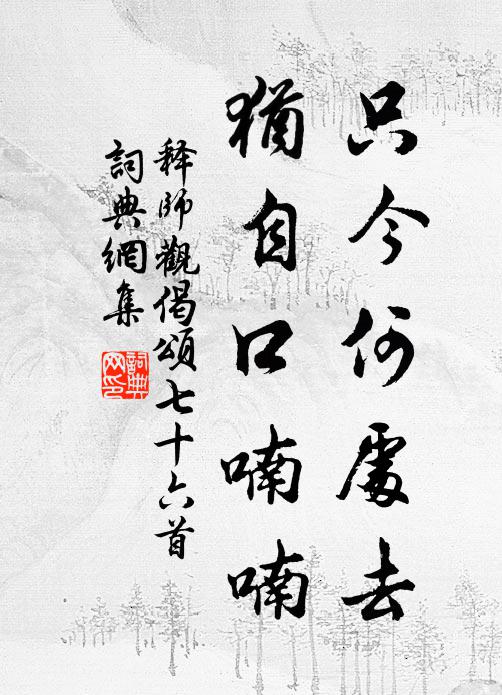 只今何處去
猶自口喃喃
釋師觀偈頌七十六首
詞典網集
詞典网印